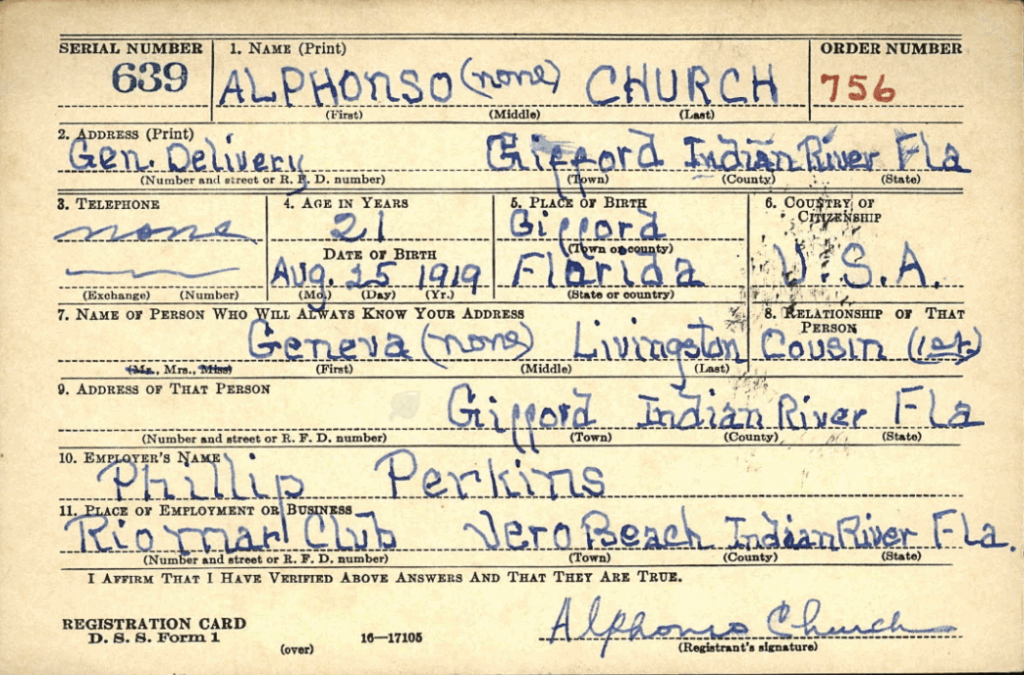 SERIAL NUMBER 1. NAME (Print) ORDER NUMBER
639 ALPHONSO (none) CHURCH 756
(First) (Middle) (Last)
2. ADDRESS (Print)
Gen. Delivery Gifford Indian River Fla
(Number and street or R. F. D. number) (Town) (County) (State)
3. TELEPHONE 4. AGE IN YEARS 5. PLACE OF BIRTH 6. COUNTRY OF CITIZENSHIP
none 21 Gifford
(Town or county)
DATE OF BIRTH
Aug. 25 1919 Florida U.S.A.
(Exchange) (Number) (Mo.) (Day) (Yr.) (State or country)
7. NAME OF PERSON WHO WILL ALWAYS KNOW YOUR ADDRESS 8. RELATIONSHIP OF THAT PERSON
Geneva (none) Livingston Cousin (1st.)
(Mr., Mrs., Miss) (First) (Middle) (Last)
9. ADDRESS OF THAT PERSON
Gifford Indian River Fla
(Number and street or R. F. D. number) (Town) (County) (State)
10. EMPLOYER'S NAME
Phillip Perkins
11. PLACE OF EMPLOYMENT OR BUSINESS
Riomar Club Vero Beach Indian River Fla.
(Number and street or R. F. D. number) (Town) (County) (State)
I AFFIRM THAT I HAVE VERIFIED ABOVE ANSWERS AND THAT THEY ARE TRUE.
REGISTRATION CARD
D. S. S. Form 1 16—17105 Alphonso Church
(over) (Registrant's signature)